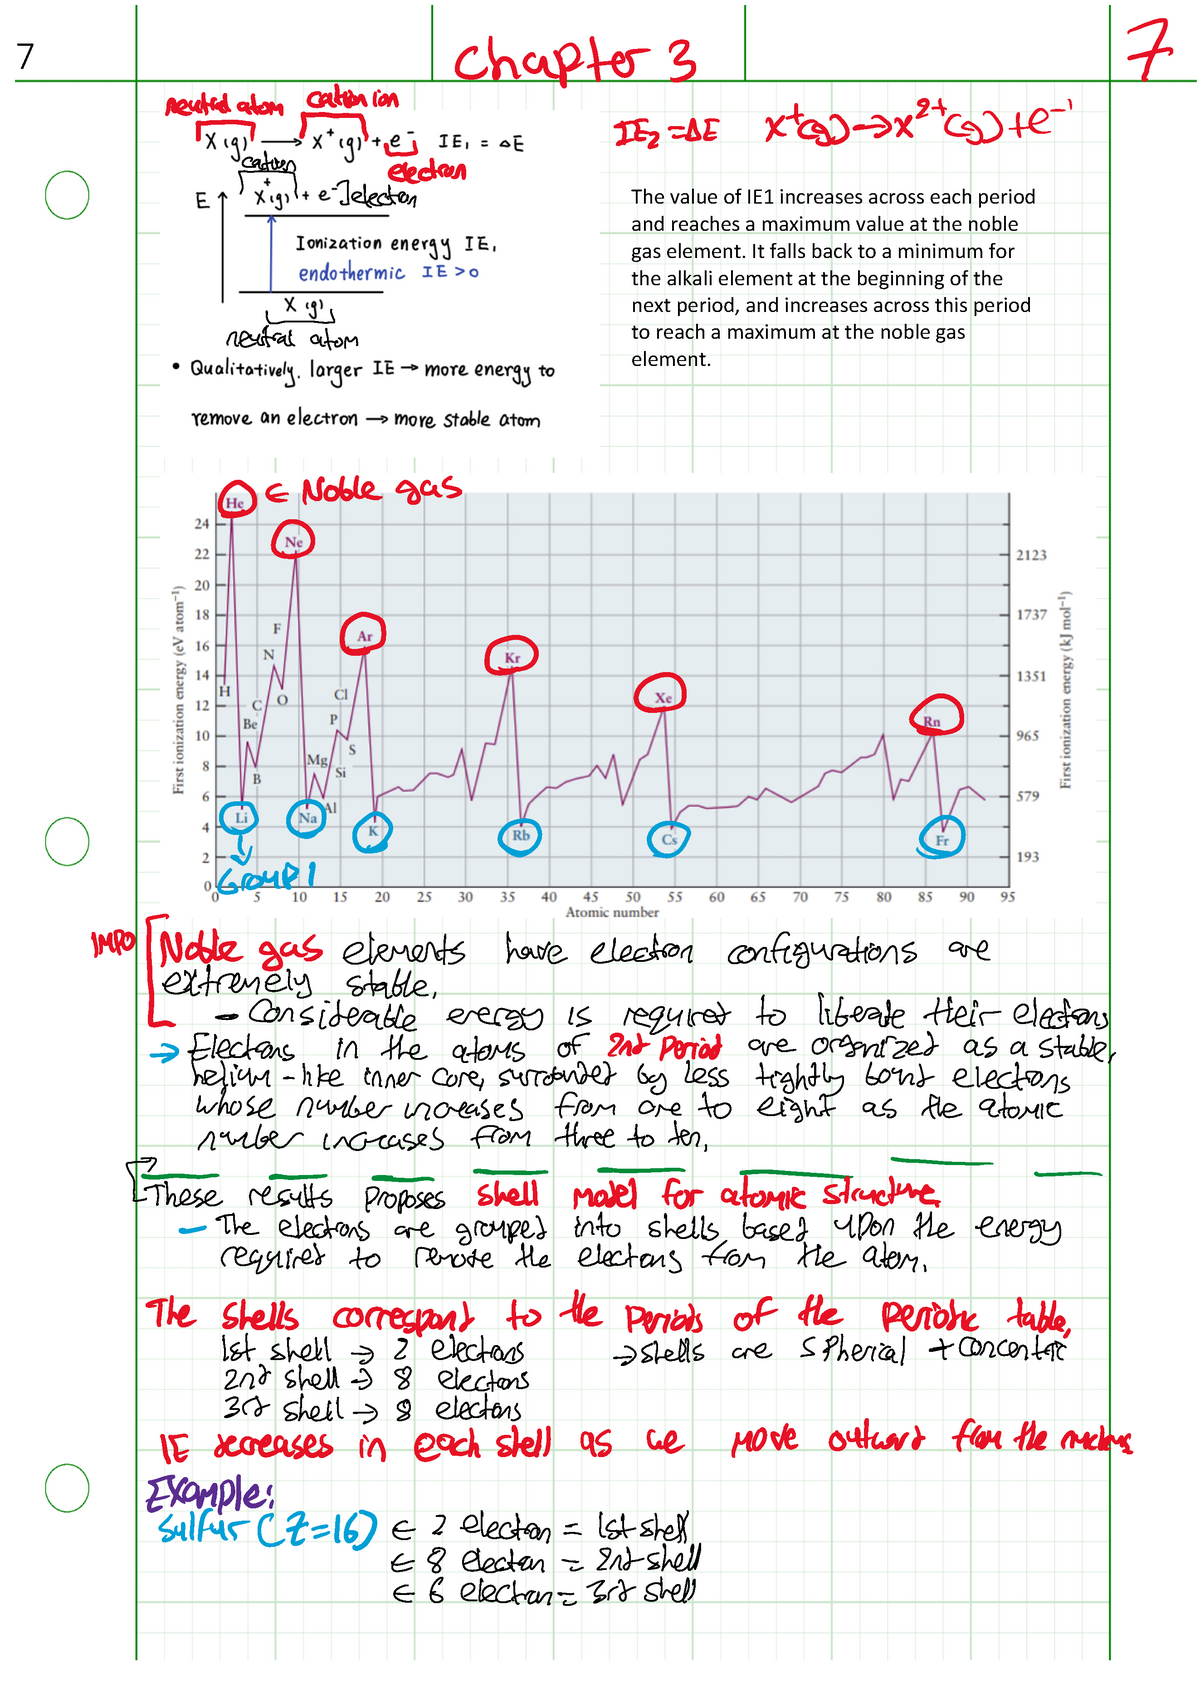 7
Chapter 3
7
neutral atom
cation ion
X(g) → X⁺(g) + e⁻ IE₁ = ΔE
electron
IE₂ = ΔE X⁺(g) → X²⁺(g) + e⁻¹
cation
E X⁺(g) + e⁻] electron
Ionization energy IE₁
endothermic IE > 0
X (g)
neutral atom
• Qualitatively. larger IE → more energy to
remove an electron → more stable atom
The value of IE1 increases across each period
and reaches a maximum value at the noble
gas element. It falls back to a minimum for
the alkali element at the beginning of the
next period, and increases across this period
to reach a maximum at the noble gas
element.
He ∈ Noble gas
Ne
Ar
Kr
Xe
Rn
F
N
H
C
O
Be
B
Cl
P
S
Mg
Si
Al
Li
Na
K
Rb
Cs
Fr
Group 1
24
22
20
18
16
14
12
10
8
6
4
2
0
First ionization energy (eV atom⁻¹)
2123
1737
1351
965
579
193
First ionization energy (kJ mol⁻¹)
0 5 10 15 20 25 30 35 40 45 50 55 60 65 70 75 80 85 90 95
Atomic number
IMPO
Noble gas elements have electron configurations are
extremely stable,
- Consideable energy is required to liberate their electrons
→ Electrons in the atoms of 2nd Period are organized as a stable,
helium-like inner core, surrounded by less tightly bound electrons
whose number increases from one to eight as the atomic
number increases from three to ten,
These results proposes shell model for atomic structure
- The electrons are grouped into shells based upon the energy
required to remove the electrons from the atom.
The shells correspond to the Periods of the periodic table,
1st shell → 2 electrons → shells are spherical + concentric
2nd shell → 8 electrons
3rd shell → 8 electrons
IE decreases in each shell as we move outward from the nucleus
Example:
Sulfur (Z=16) ∈ 2 electron = 1st shell
∈ 8 electron = 2nd shell
∈ 6 electron = 3rd shell